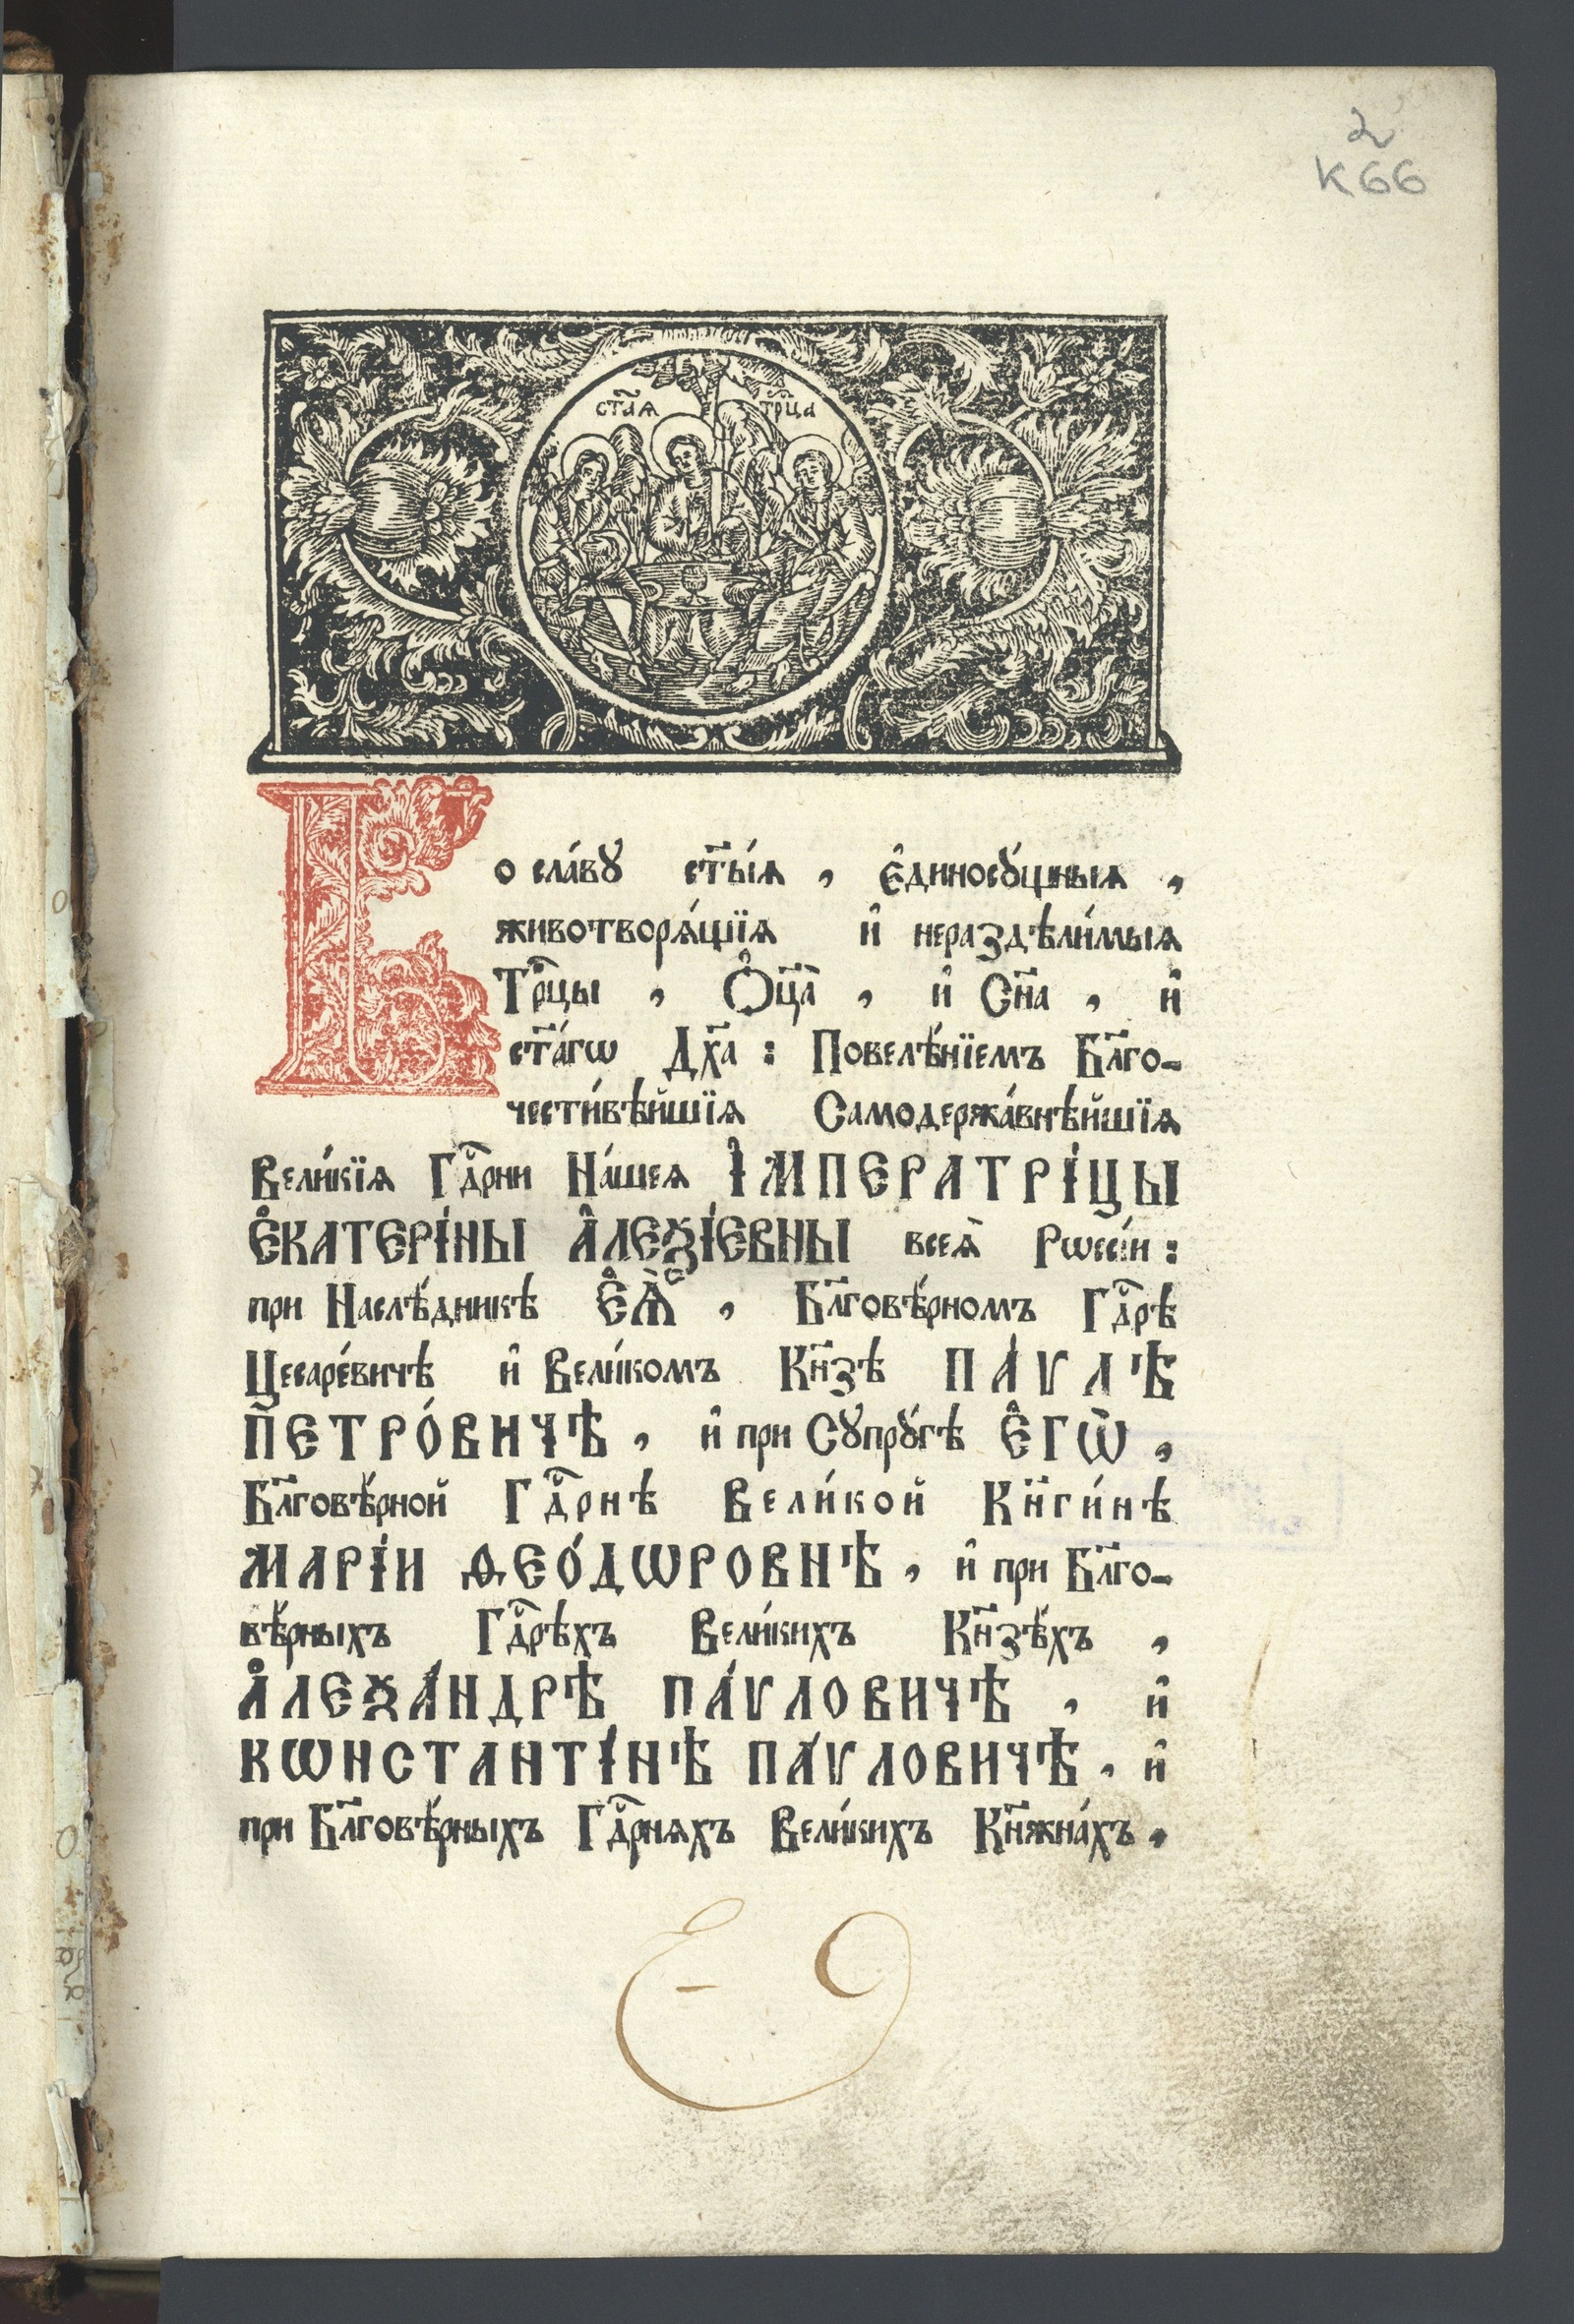 2
К66
ст҃а́ѧ трⷪ҇ца
Во сла́вꙋ ст҃ы́ѧ , є҆диносꙋ́щныѧ ,
животворѧ́щїѧ и҆ нераздѣли́мыѧ
Трⷪ҇цы , Ѻ҆ц҃а̀ , и҆ Сн҃а , и҆
ст҃а́гѡ Дх҃а : Повелѣ́нїемъ Бл҃го-
чести́вѣйшїѧ Самодержа́внѣйшїѧ
Вели́кїѧ Гдⷭ҇рни На́шеѧ І҆МПЕРАТРІ́ЦЫ
Є҆КАТЕРІ́НЫ А҆ЛЕѮІ́ЕВНЫ всеѧ̀ Рѡссі́и :
при Наслѣ́дникѣ Є҆Ѧ̀ , Бл҃говѣ́рномъ Гдⷭ҇рѣ
Цесаре́вичѣ и҆ Вели́комъ Кн҃зѣ ПА́ѴЛѢ
ПЕТРО́ВИЧѢ , и҆ при Сꙋпрꙋ́гѣ Є҆ГѠ̀ ,
Бл҃говѣ́рной Гдⷭ҇рнѣ Вели́кой Кн҃ги́нѣ
МАРІ́И ѲЕО́ДѠРОВНѢ , и҆ при Бл҃го-
вѣ́рныхъ Гдⷭ҇рѣхъ Вели́кихъ Кн҃зѣ́хъ ,
А҆ЛЕѮА́НДРѢ ПА́ѴЛОВИЧѢ , и҆
КѠНСТАНТІ́НѢ ПА́ѴЛОВИЧѢ , и҆
при Бл҃говѣ́рныхъ Гдⷭ҇рнѧхъ Вели́кихъ Кн҃жна́хъ ,